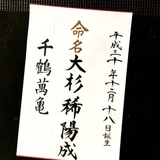 平成二十年十二月十八日誕生
命名 大杉稀陽成
千鶴萬亀